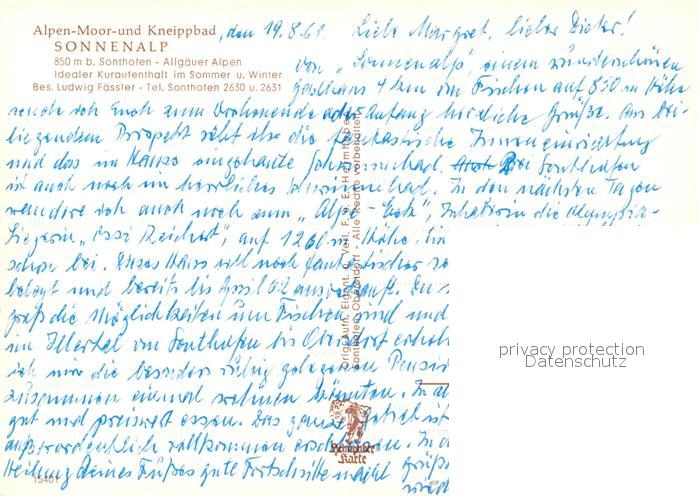 Alpen-Moor-und Kneippbad
SONNENALP
850 m b. Sonthofen - Allgäuer Alpen
Idealer Kuraufenthalt im Sommer u. Winter
Bes. Ludwig Fässler - Tel. Sonthofen 2630 u. 2631
, den 19.8.61. Liebe Margret, lieber Dieter!
von „Sonnenalp", einem wunderschönen
Gasthaus 4 km von Fischen auf 850 m Höhe
sende ich Euch zum Wochenende oder Anfang herzliche Grüße. Aus bei-
liegendem Prospekt seht Ihr die fantastische Inneneinrichtung
und das im Hause eingebaute Schwimmbad. Bei Sonthofen
ist auch noch ein herrliches Schwimmbad. In den nächsten Tagen
wandere ich auch noch zum „Alpe-Eck", Inhaberin die Olympia-
Siegerin „Ossi Reichert", auf 1260 m Höhe,
schon bei. Dieses Haus soll noch fantastischer
belegt und bereits bis April 62 ausverkauft. Du
die Möglichkeiten um Fischen sind und
im Illertal von Sonthofen bis Oberstdorf
ich mir die besonders ruhig gelegenen
zusammen einmal wohnen könnten. In
gut und preiswert essen. Das ganze ist
außerordentlich vollkommen erschlossen. In
Heilung deines Fußes gute Fortschritte macht
Orig. Aufn. Eigent. u. Verl. F. u. E. Heimhuber
Sonthofen Oberstdorf - Alle Rechte vorbehalten
Heimhuber
Karte
privacy protection
Datenschutz